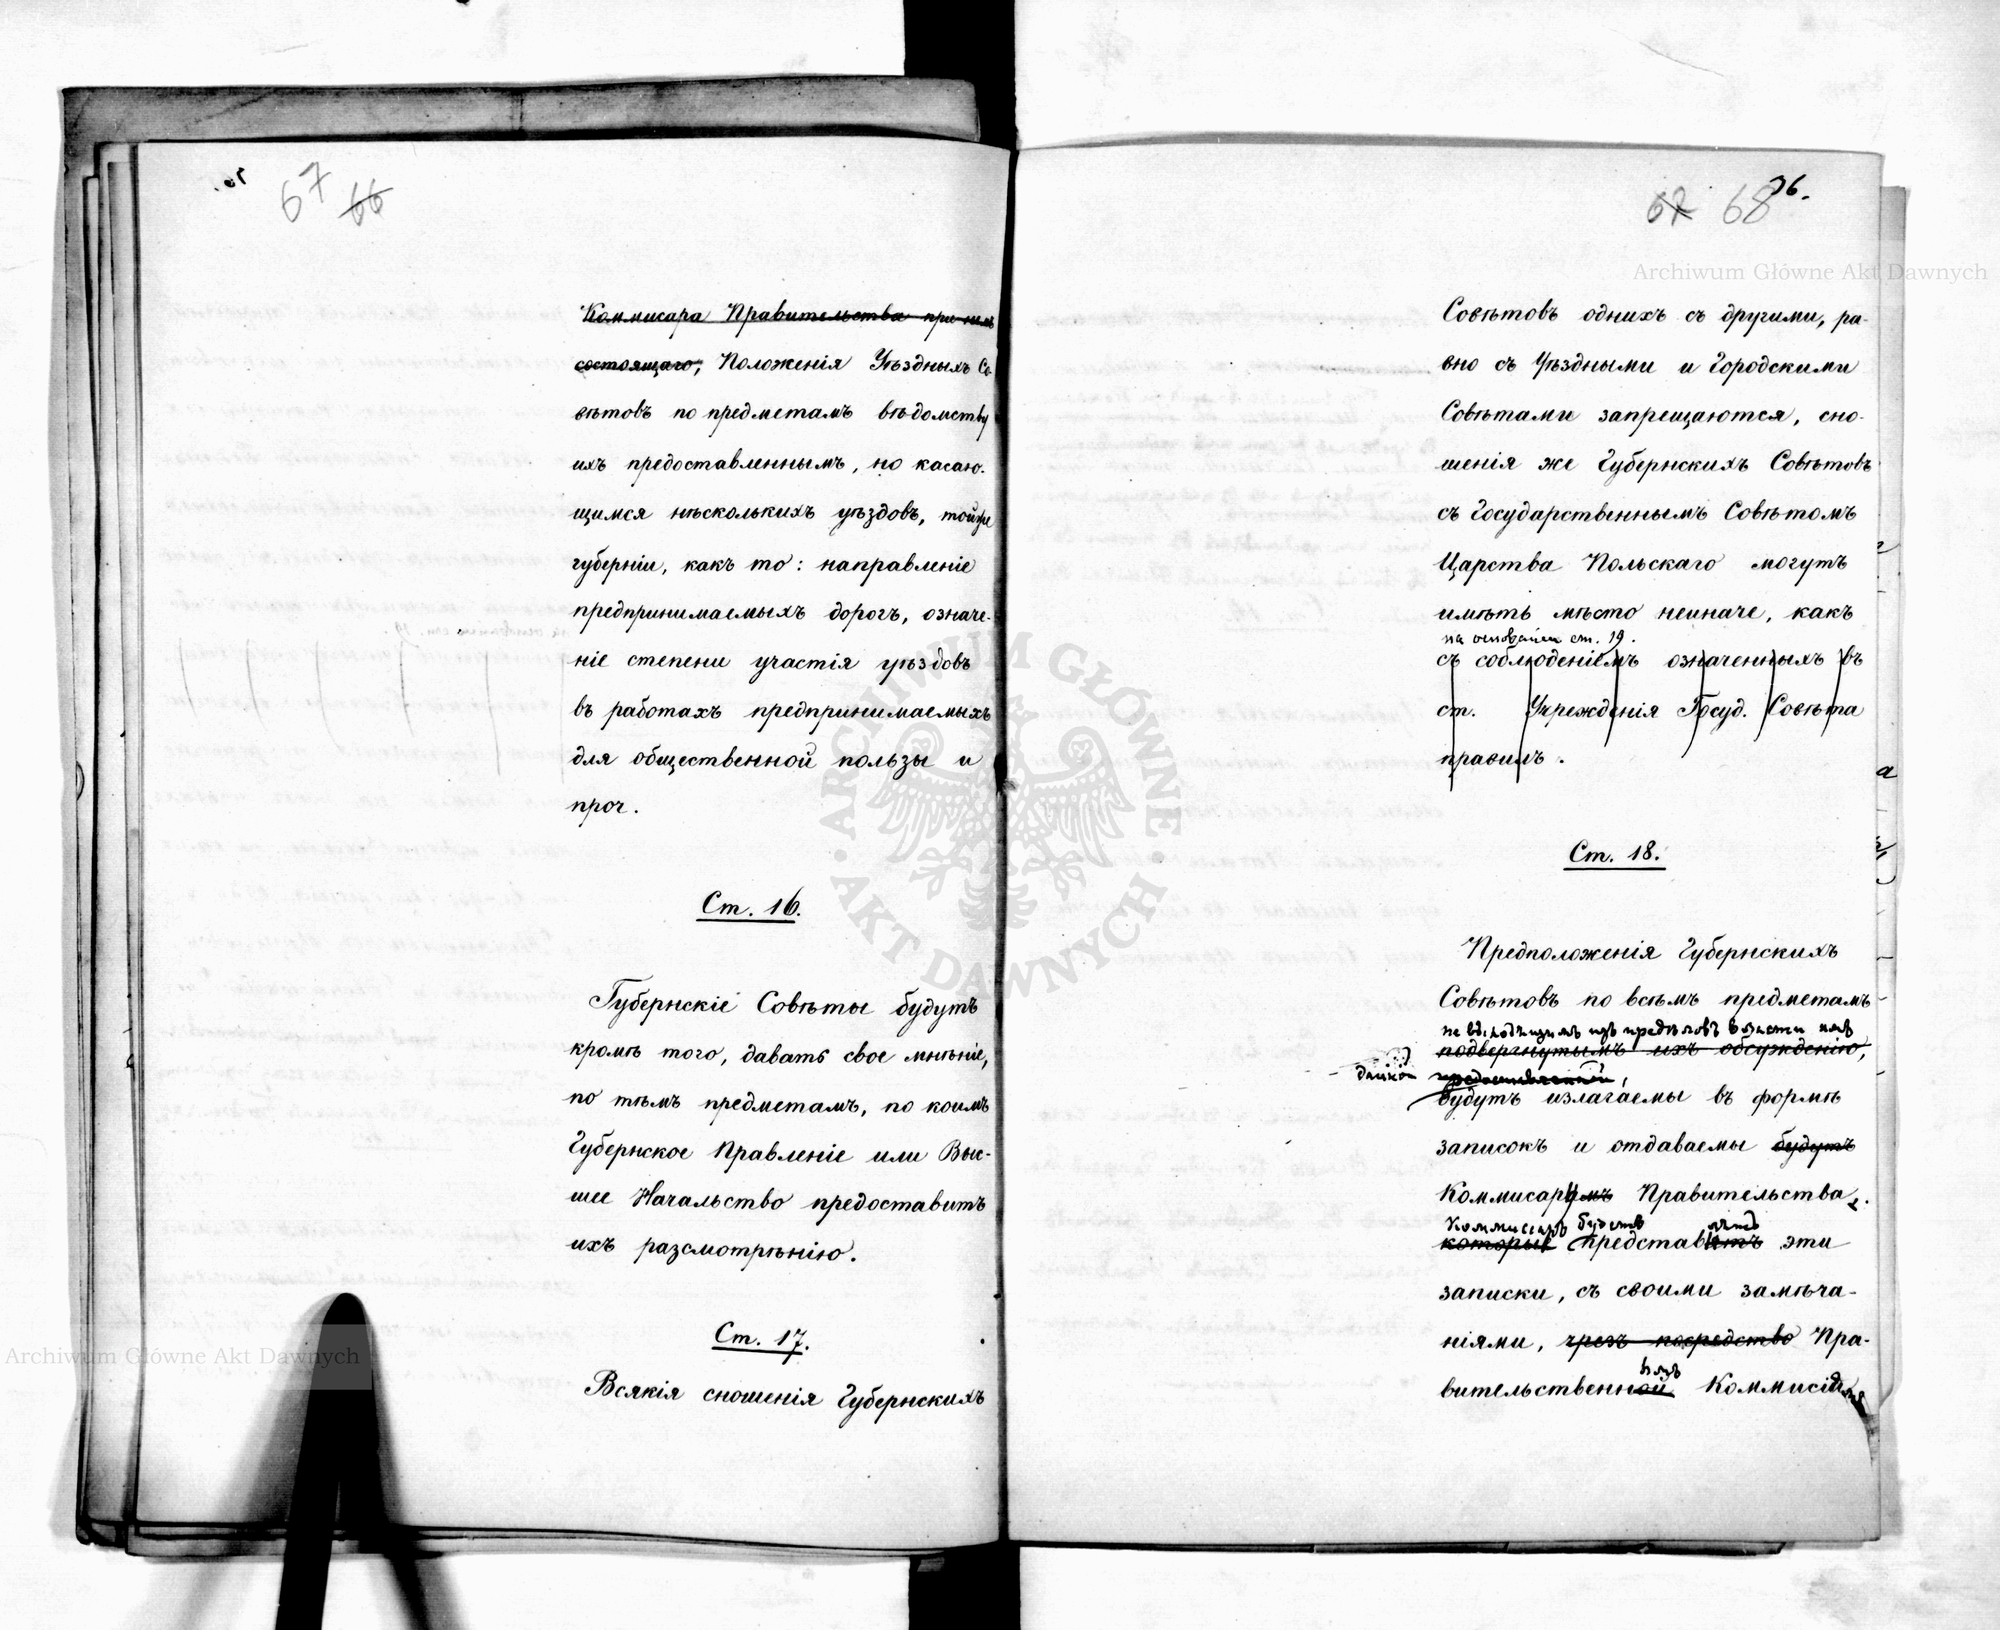 67 66
Коммисара Правительства при немъ
состоящаго, Положенія Уѣздныхъ Со-
вѣтовъ по предметамъ вѣдомству
ихъ предоставленнымъ, но касаю-
щимся нѣсколькихъ уѣздовъ, той же
губерніи, какъ то: направленіе
предпринимаемыхъ дорогъ, означе-
ніе степени участія уѣздовъ
въ работахъ предпринимаемыхъ
для общественной пользы и
проч.
Ст. 16.
Губернскіе Совѣты будутъ
кромѣ того, давать свое мнѣніе,
по тѣмъ предметамъ, по коимъ
Губернское Правленіе или Выс-
шее Начальство предоставитъ
ихъ разсмотрѣнію.
Ст. 17.
Всякія сношенія Губернскихъ
67 68 36.
Совѣтовъ однихъ съ другими, ра-
вно съ Уѣздными и Городскими
Совѣтами запрещаются, сно-
шенія же Губернскихъ Совѣтовъ
съ Государственнымъ Совѣтомъ
Царства Польскаго могутъ
имѣть мѣсто неиначе, какъ
на основаніи ст. 19.
съ соблюденіемъ означенныхъ въ
ст. Учрежденія Госуд. Совѣта
правилъ.
Ст. 18.
Предположенія Губернскихъ
Совѣтовъ по всѣмъ предметамъ
не выходящимъ изъ предѣловъ власти имъ
подвергнутымъ ихъ обсужденію,
данной предоставленной,
будутъ излагаемы въ формѣ
записокъ и отдаваемы будутъ
Коммисару Правительства.
Коммиссаръ будетъ
которые представ эти
записки, съ своими замѣча-
ніями, чрезъ посредство Пра-
вительственной Коммисіи
Archiwum Główne Akt Dawnych
Archiwum Główne Akt Dawnych
ARCHIWUM GŁÓWNE · AKT DAWNYCH ·